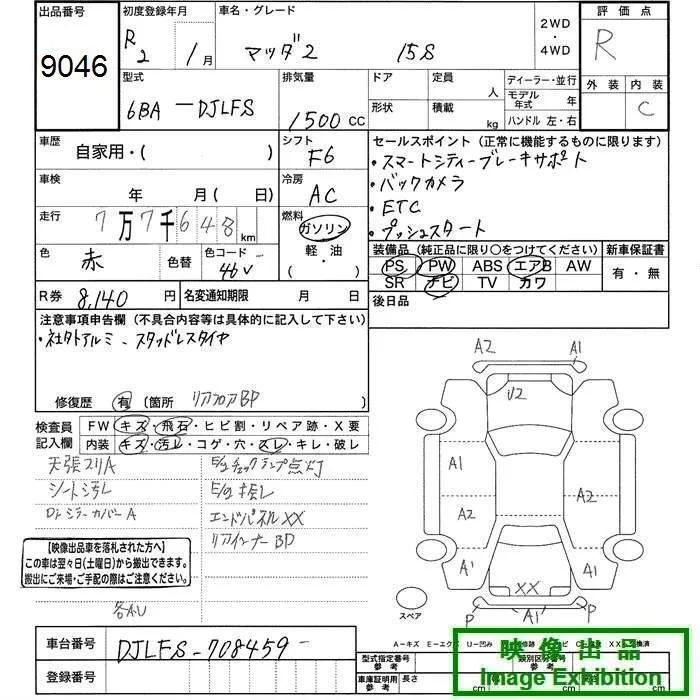 出品番号 初度登録年月 車名・グレード 2WD・4WD 評価点
9046 R2 1月 マツダ2 15S R
外装 内装
C
型式 排気量 ドア 定員 人 ディーラー・並行
6BA-DJLFS 1500CC 形状 積載 kg モデル年式 年
ハンドル 左・右
車歴 自家用・( ) シフト F6
セールスポイント(正常に機能するものに限ります)
・スマートシティーブレーキサポート
・バックカメラ
・ETC
・プッシュスタート
車検 年 月(日) 冷房 AC
走行 7万7千648km 燃料 ガソリン
軽・油
・( )
色 赤 色替 色コード 46V
装備品(純正品に限り○をつけてください) 新車保証書
PS PW ABS エアB AW 有・無
SR ナビ TV カワ
R券 8,140円 名変通知期限 月 日
後日品
注意事項申告欄(不具合内容等は具体的に記入して下さい)
・社外アルミ、スタッドレスタイヤ
修復歴 有 (箇所 リアフロアBP
検査員記入欄 FW キズ・飛石・ヒビ割・リペア跡・X要
内装 キズ・汚レ・コゲ・穴・スレ・キレ・破レ
天張スリA E/gチェックランプ点灯
シート汚レ E/g
Drシラーカバー A エンドパネルXX
リアインナーBP
【映像出品車を落札された方へ】
この車は翌々日(土曜日)から搬出できます。
搬出にご来場・ご手配の際はご注意ください。
A2 A1
U2
A1
A2
A2
A1 A1
XX
P A1 P
スペア
車台番号 DJLFS-708459
登録番号
A-キズ E-エクボ U-凹み
型式指定番号 参考 類別区分番号 参考
車庫証明用 参考 長さ cm cm cm
映像出品
Image Exhibition